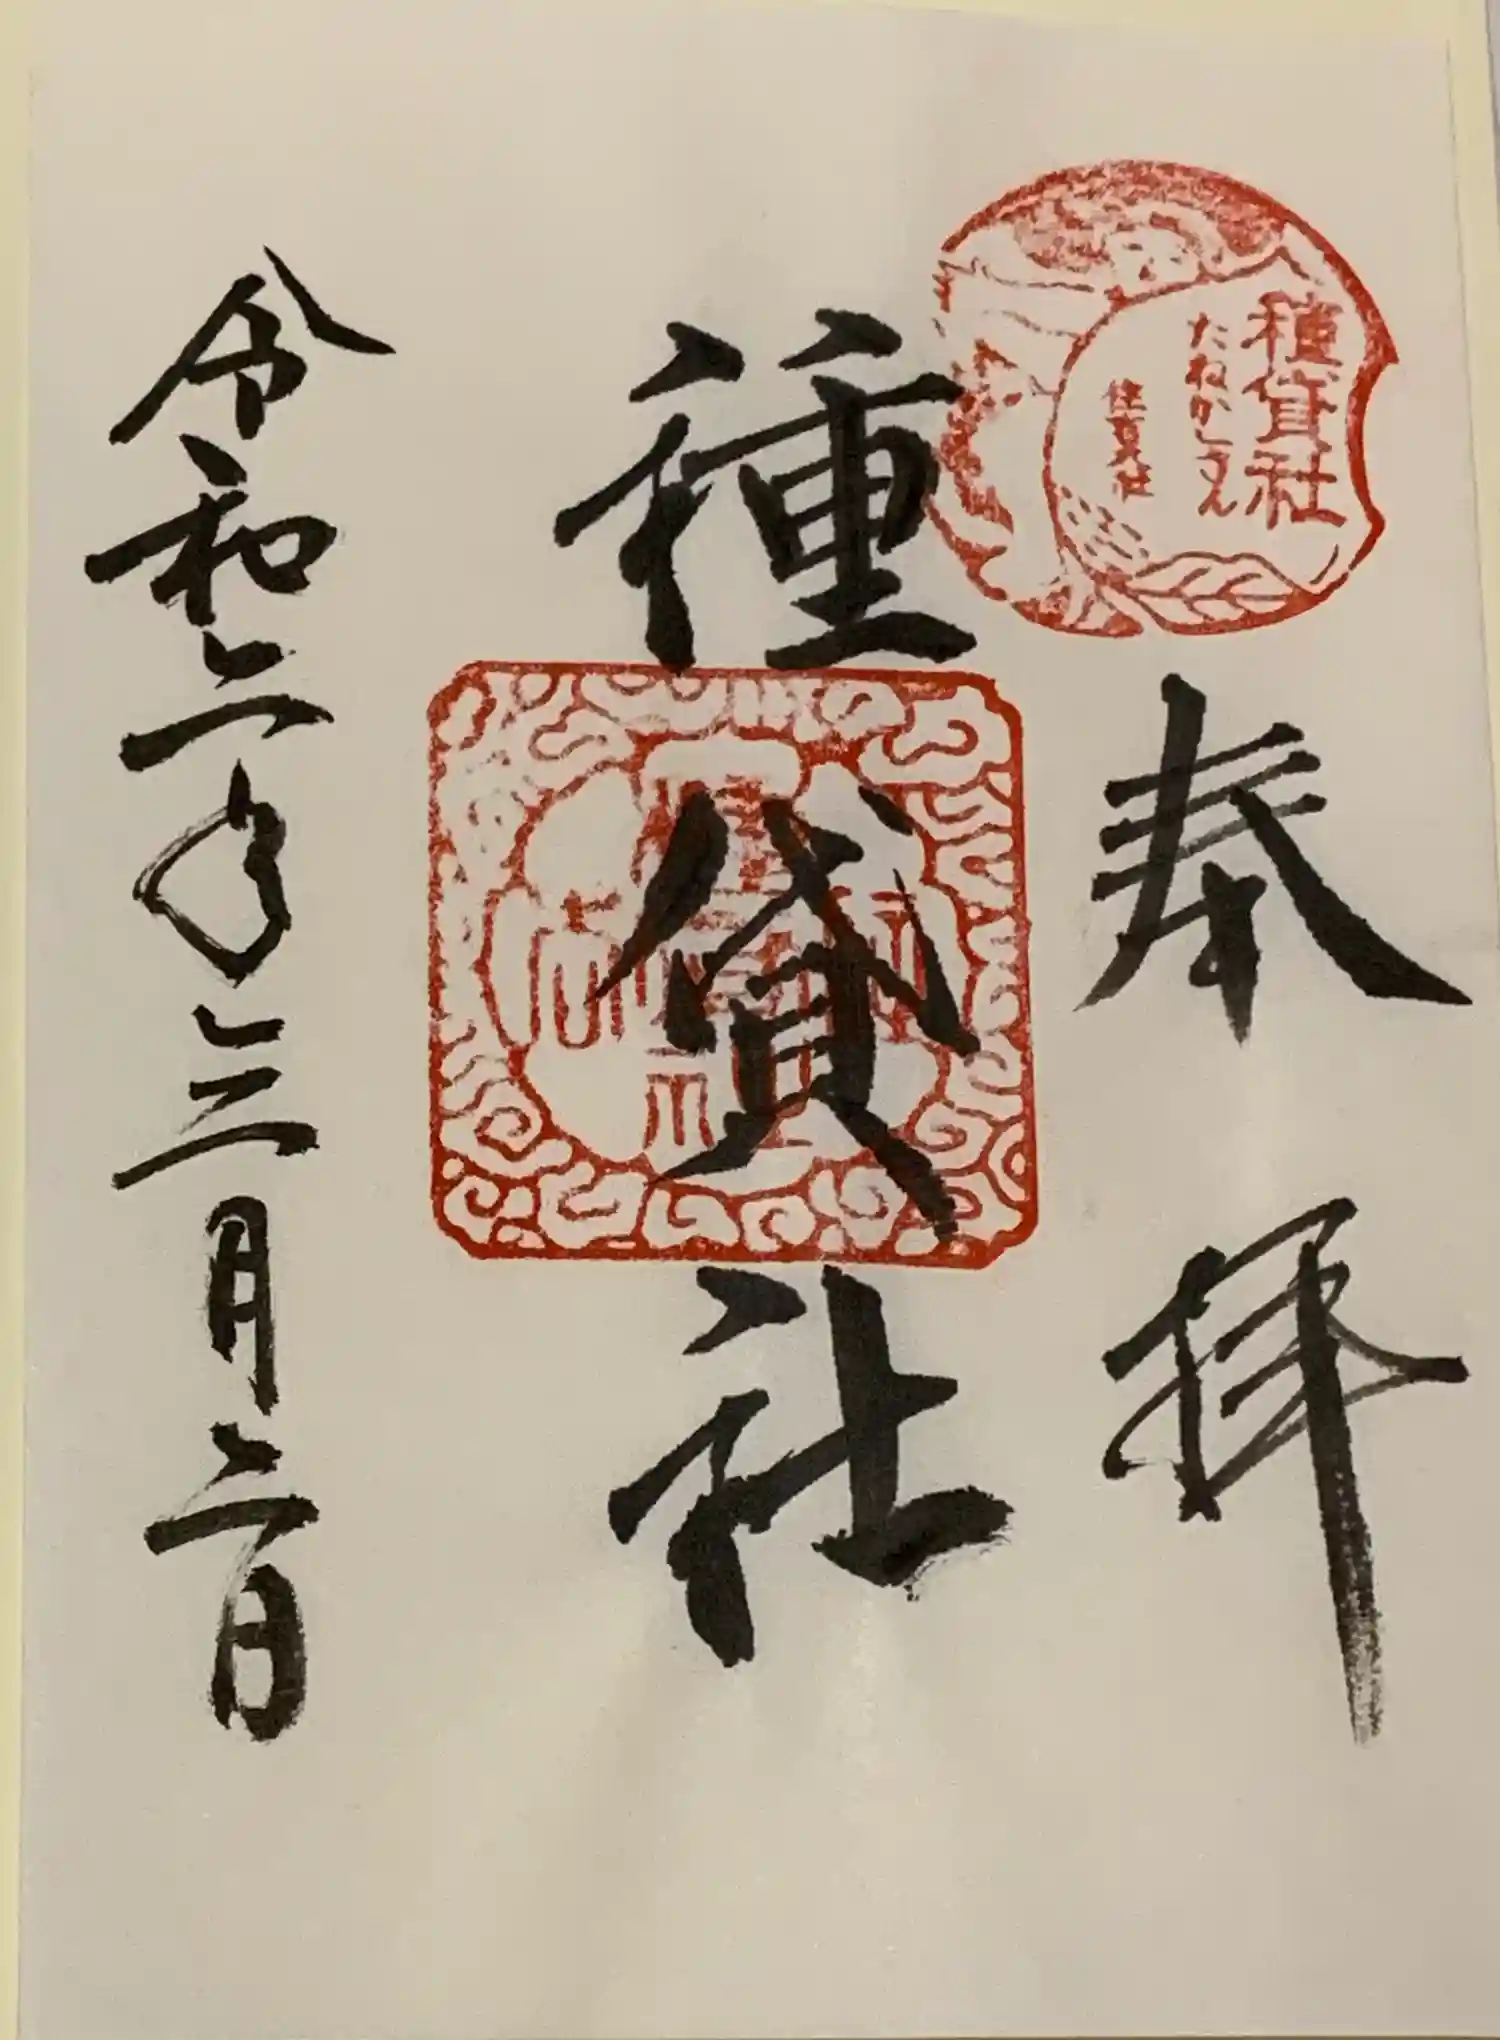 種貸社
たねかしさん
住吉大社
奉拝
種貸社
令和二年三月二日